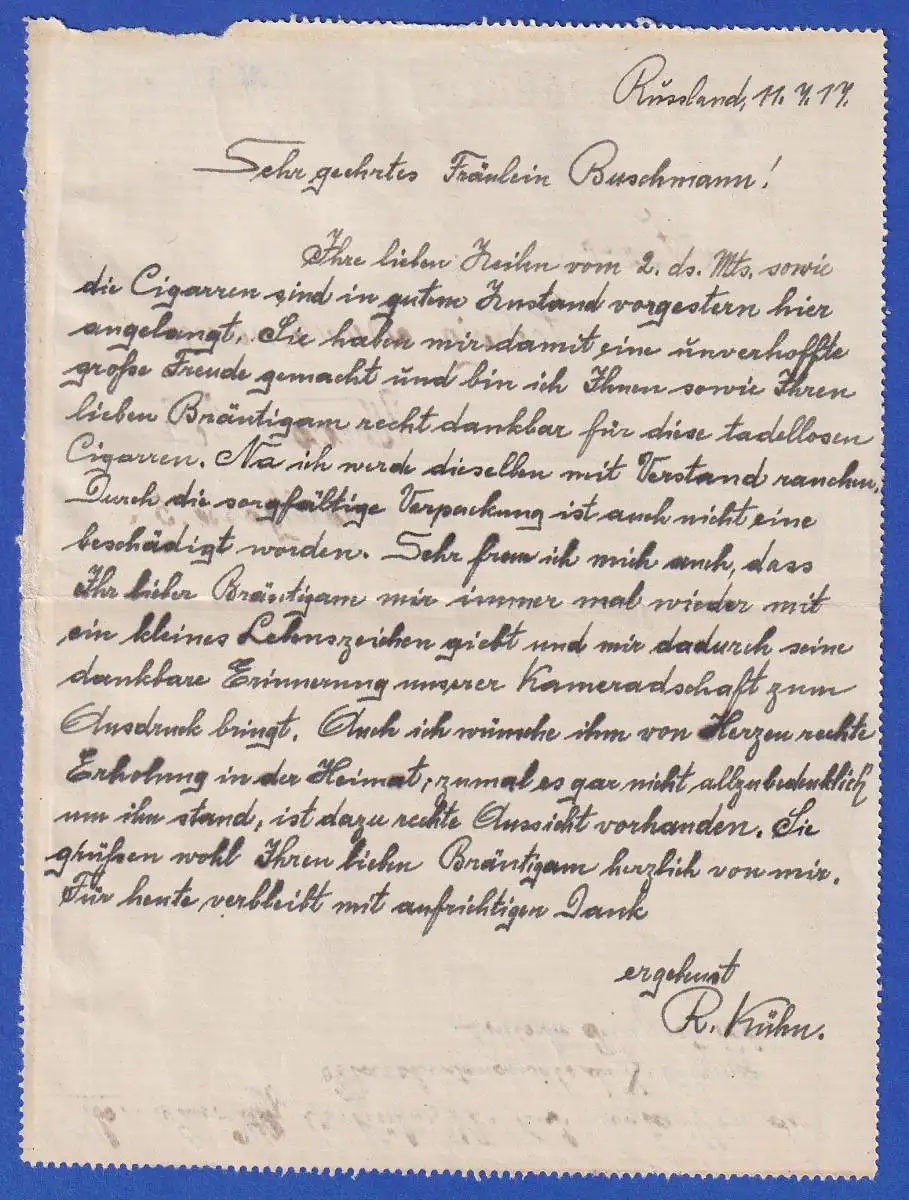 Russland, 11. 7. 17.
Sehr geehrtes Fräulein Buschmann!
Ihre lieben Zeiln vom 2. ds. Mts. sowie
die Cigarren sind in gutem Zustand vorgestern hier
angelangt. Sie haben mir damit eine unverhoffte
große Freude gemacht und bin ich Ihnen sowie Ihren
lieben Bräutigam recht dankbar für diese tadellosen
Cigarren. Na ich werde dieselben mit Verstand rauchen.
Durch die sorgfältige Verpackung ist auch nicht eine
beschädigt worden. Sehr freu ich mich auch, dass
Ihr lieber Bräutigam mir immer mal wieder mit
ein kleines Lebenszeichen giebt und mir dadurch seine
dankbare Erinnerung unserer Kameradschaft zum
Ausdruck bringt. Auch ich wünsche ihm von Herzen rechte
Erholung in der Heimat, zumal es gar nicht allzubedenklich
um ihn stand, ist dazu rechte Aussicht vorhanden. Sie
grüßen wohl Ihren lieben Bräutigam herzlich von mir.
Für heute verbleibt mit aufrichtigen Dank
ergebenst
R. Kühn.